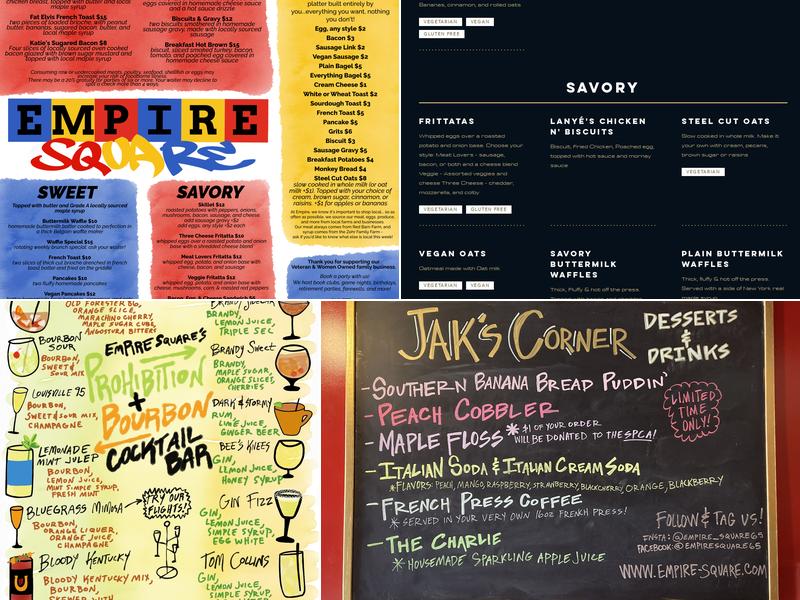 maple syrup
Fat Elvis French Toast $15
two pieces of loaded brioche, with peanut
butter, bananas, sugared bacon, butter, and
local maple syrup
Katie's Sugared Bacon $8
Four slices of locally sourced oven cooked
bacon glazed with brown sugar mustard and
topped with local maple syrup
eggs covered in homemade cheese sauce
and a hot sauce drizzle
Biscuits & Gravy $12
two biscuits smothered in homemade
sausage gravy, made with locally sourced
sausage
Breakfast Hot Brown $15
biscuit, sliced smoked turkey, bacon,
tomato, and poached egg covered in
homemade cheese sauce
Consuming raw or undercooked meats, poultry, seafood, shellfish or eggs may
increase your risk of foodborne illness.
There may be a 20% gratuity for parties of six or more. Your waiter may decline to
split a check more than 4 ways
platter built entirely by
you...everything you want, nothing
you don't!
Egg, any style $2
Bacon $3
Sausage Link $2
Vegan Sausage $2
Plain Bagel $5
Everything Bagel $5
Cream Cheese $1
White or Wheat Toast $2
Sourdough Toast $3
French Toast $5
Pancake $5
Grits $6
Biscuit $3
Sausage Gravy $5
Breakfast Potatoes $4
Monkey Bread $4
Steel Cut Oats $8
slow cooked in whole milk (or oat
milk +$1). Topped with your choice of
cream, brown sugar, cinnamon, or
raisins. +$1 for apples or bananas
At Empire, we know it's important to shop local... so as
often as possible, we source our meat, eggs, produce,
and more from local farms and businesses.
Our meat always comes from Red Barn Farm, and
syrup comes from the Zohr Family Farm -
ask if you'd like to know what else is local this week!
Thank you for supporting our
Veteran & Women Owned family business.
Book a party with us!
We host book clubs, game nights, birthdays,
retirement parties, farewells, and more!
EMPIRE
SQUARE
SWEET
Topped with butter and Grade A locally sourced
maple syrup
Buttermilk Waffle $10
homemade buttermilk batter cooked to perfection in
a thick Belgian waffle maker
Waffle Special $15
rotating weekly brunch special, ask your waiter!
French Toast $10
two slices of thick cut brioche drenched in french
toast batter and fried on the griddle
Pancakes $10
two fluffy homemade pancakes
Vegan Pancakes $12
SAVORY
Skillet $12
roasted potatoes with peppers, onions,
mushrooms, bacon, sausage, and cheese
add sausage gravy +$2
add eggs, any style +$2
Three Cheese Frittata $10
whipped eggs over a roasted potato and onion
base with a shredded cheese blend
Meat Lovers Frittata $12
whipped eggs over a potato and onion base with
cheese, bacon, and sausage
Veggie Frittata $12
whipped eggs over a potato and onion base with
cheese, mushrooms, corn & roasted red peppers
Bacon, Egg, & Cheese Sandwich $8
Bananas, cinnamon, and rolled oats
VEGETARIAN VEGAN
GLUTEN FREE
SAVORY
FRITTATAS
Whipped eggs over a roasted
potato and onion base. Choose your
style: Meat Lovers - sausage,
bacon, or both and a cheese blend
Veggie - Assorted veggies and
cheese Three Cheese - cheddar,
mozzarella, and colby
VEGETARIAN GLUTEN FREE
LANYÉ'S CHICKEN
N' BISCUITS
Biscuit, Fried Chicken, Poached egg,
topped with hot sauce and mornay
sauce
STEEL CUT OATS
Slow cooked in whole milk. Make it
your own with cream, pecans,
brown sugar or raisins
VEGETARIAN
VEGAN OATS
Oatmeal made with Oat milk
VEGETARIAN VEGAN
SAVORY
BUTTERMILK
WAFFLES
Thick, fluffy & hot off the press.
PLAIN BUTTERMILK
WAFFLES
Thick, fluffy & hot off the press.
Served with a side of New York real
maple syrup
OLD FORESTER BG,
ORANGE SLICE,
MARACHINO CHERRY,
MAPLE SUGAR CUBE,
ANGOSTURA BITTERS
BOURBON
SOUR
BOURBON,
SWEET &
SOUR MIX
LOUISVILLE 75
BOURBON,
SWEET & SOUR MIX,
CHAMPAGNE
LEMONADE
MINT JULEP
BOURBON,
LEMON JUICE,
MINT SIMPLE SYRUP,
FRESH MINT
BLUEGRASS MIMOSA
BOURBON,
ORANGE LIQUER,
ORANGE JUICE,
CHAMPAGNE
BLOODY KENTUCKY
BLOODY KENTUCKY MIX,
BOURBON,
SKEWER WITH
EMPIRE SQUARE'S
PROHIBITION
+
BOURBON
COCKTAIL
BAR
TRY OUR
FLIGHTS!
BRANDY SIDECAR
BRANDY,
LEMON JUICE,
TRIPLE SEC
BRANDY SWEET
BRANDY,
MAPLE SUGAR,
ORANGE SLICES,
CHERRIES
DARK & STORMY
RUM,
LIME JUICE,
GINGER BEER
BEE'S KNEES
GIN,
LEMON JUICE,
HONEY SYRUP
GIN FIZZ
GIN,
LEMON JUICE,
SIMPLE SYRUP,
EGG WHITE
TOM COLLINS
GIN,
LEMON JUICE,
SIMPLE SYRUP,
JAK'S CORNER
DESSERTS
&
DRINKS
- SOUTHERN BANANA BREAD PUDDIN'
- PEACH COBBLER
- MAPLE FLOSS * $1 OF YOUR ORDER
WILL BE DONATED TO THE SPCA!
LIMITED
TIME
ONLY!
- ITALIAN SODA & ITALIAN CREAM SODA
* FLAVORS: PEACH, MANGO, RASPBERRY, STRAWBERRY, BLACK CHERRY, ORANGE, BLACKBERRY
- FRENCH PRESS COFFEE
* SERVED IN YOUR VERY OWN 16oz FRENCH PRESS!
- THE CHARLIE
* HOUSEMADE SPARKLING APPLE JUICE
FOLLOW & TAG US!
INSTA: @EMPIRE_SQUARE65
FACEBOOK: @EMPIRESQUARE65
WWW.EMPIRE-SQUARE.COM